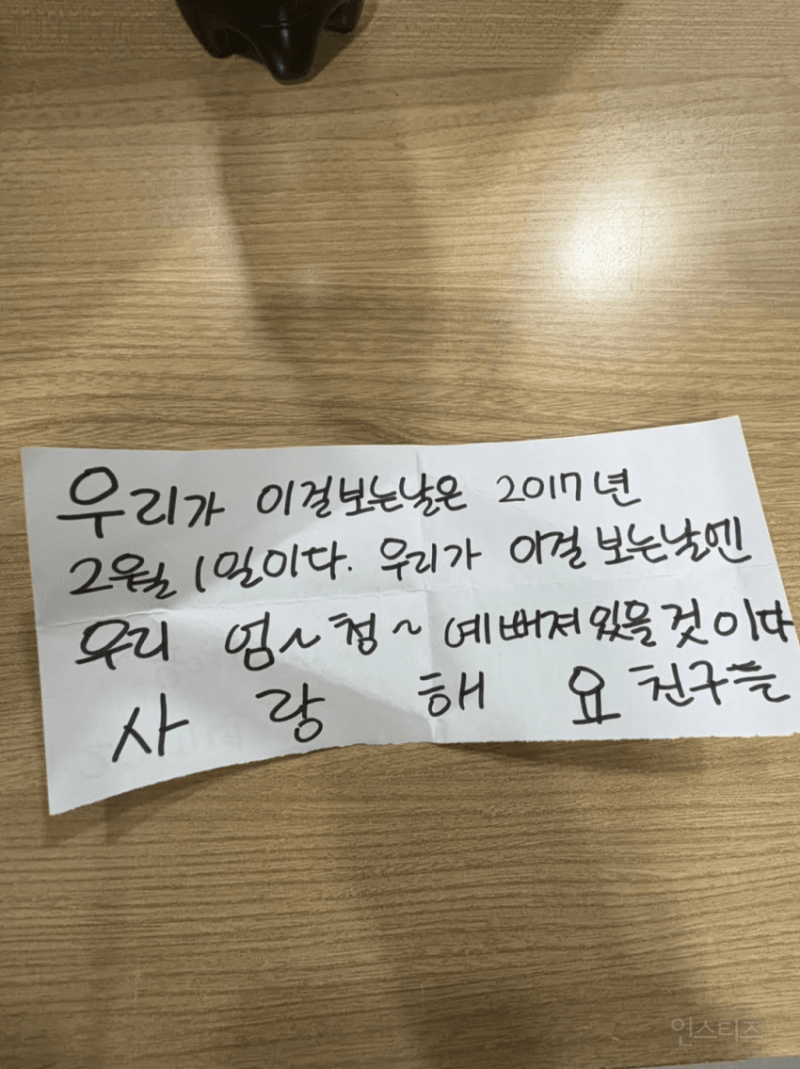 우리가 이걸보는날은 2017년
2월 1일이다. 우리가 이걸 보는날엔
우리 엄~청~ 예뻐져있을것이다
사 랑 해 요 친구들
인스티즈